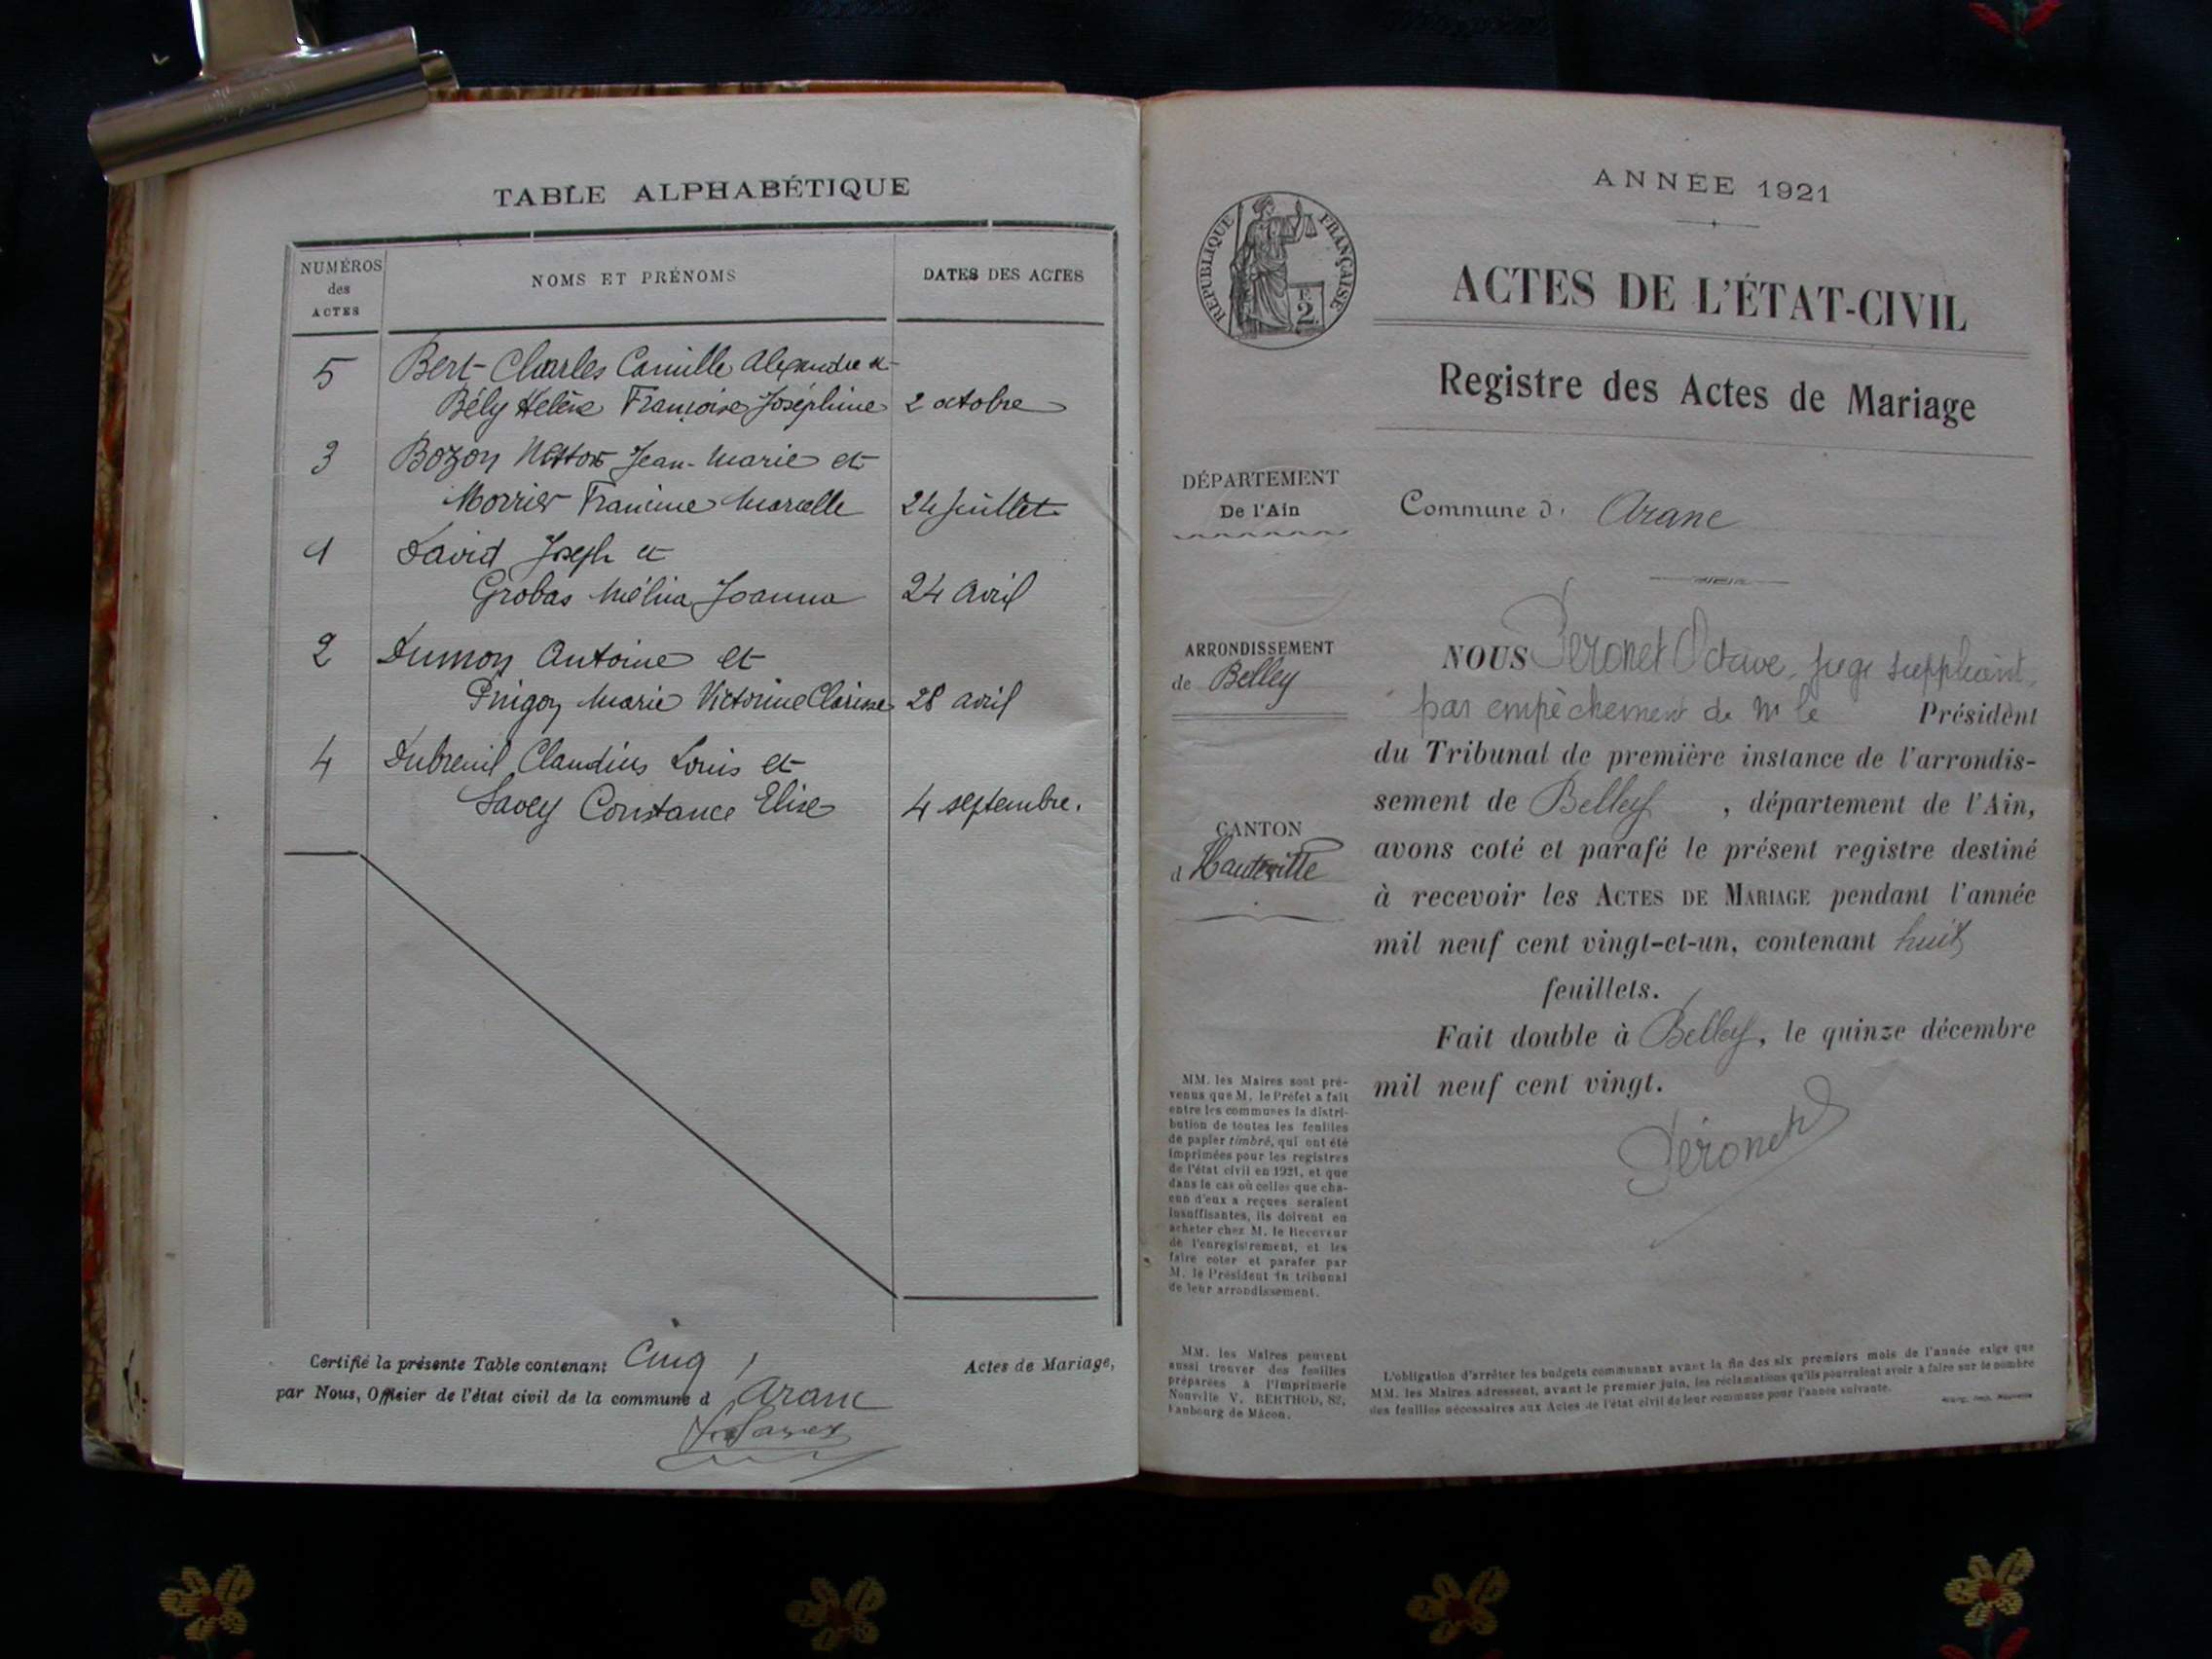 TABLE ALPHABÉTIQUE
NUMÉROS
des
ACTES
NOMS ET PRÉNOMS
DATES DES ACTES
5 Bert Charles Camille Alexandre et
Bély Hélène Françoise Joséphine 2 octobre
3 Bozon Nestor Jean-Marie et
Morrier Francine Marcelle 24 Juillet
1 David Joseph et
Grobas Mélina Joanna 24 avril
2 Dumon Antoine et
Pingon Marie Victorine Clarisse 28 avril
4 Dubreuil Claudius Louis et
Savey Constance Elise 4 septembre.
Certifié la présente Table contenant Cinq Actes de Mariage,
par Nous, Officier de l'état civil de la commune d Aranc
ANNÉE 1921
RÉPUBLIQUE FRANÇAISE
2
F.
ACTES DE L'ÉTAT-CIVIL
Registre des Actes de Mariage
DÉPARTEMENT
De l'Ain
Commune d' Aranc
ARRONDISSEMENT
de Belley
CANTON
d Hauteville
NOUS Péronet Octave, juge suppléant,
par empêchement de Mr le Président
du Tribunal de première instance de l'arrondis-
sement de Belley, département de l'Ain,
avons coté et parafé le présent registre destiné
à recevoir les ACTES DE MARIAGE pendant l'année
mil neuf cent vingt-et-un, contenant huit
feuillets.
Fait double à Belley, le quinze décembre
mil neuf cent vingt.
Péronet
MM. les Maires sont pré-
venus que M. le Préfet a fait
entre les communes la distri-
bution de toutes les feuilles
de papier timbré, qui ont été
imprimées pour les registres
de l'état civil en 1921, et que
dans le cas où celles que cha-
cun d'eux a reçues seraient
insuffisantes, ils doivent en
acheter chez M. le Receveur
de l'enregistrement, et les
faire coter et parafer par
M. le Président du tribunal
de leur arrondissement.
MM. les Maires peuvent
aussi trouver des feuilles
préparées à l'Imprimerie
Nouvelle V. BERTHOD, 82,
Faubourg de Mâcon.
L'obligation d'arrêter les budgets communaux avant la fin des six premiers mois de l'année exige que
MM. les Maires adressent, avant le premier juin, les réclamations qu'ils pourraient avoir à faire sur le nombre
des feuilles nécessaires aux Actes de l'état civil de leur commune pour l'année suivante.